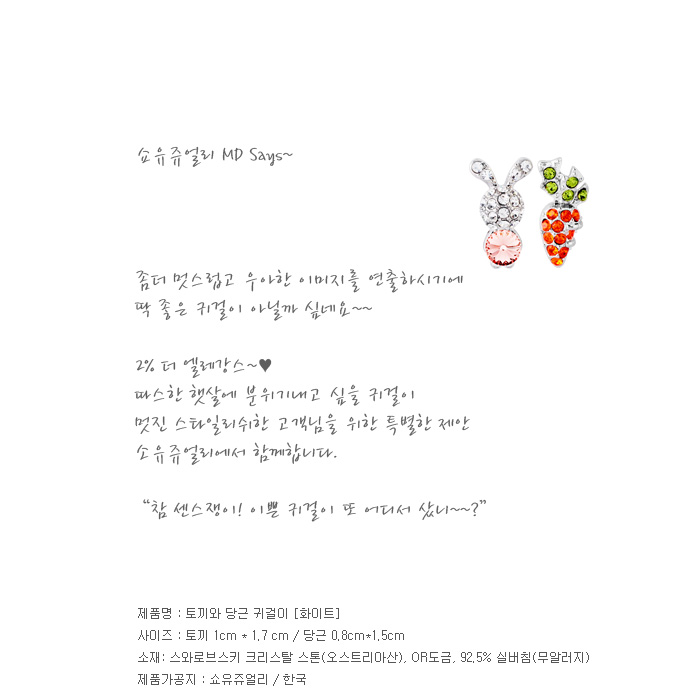 쇼유쥬얼리 MD Says~
좀더 멋스럽고 우아한 이미지를 연출하시기에
딱 좋은 귀걸이 아닐까 싶네요~~
2% 더 엘레강스~♥
따스한 햇살에 분위기내고 싶을 귀걸이
멋진 스타일리쉬한 고객님을 위한 특별한 제안
쇼유쥬얼리에서 함께합니다.
“참 센스쟁이! 이쁜 귀걸이 또 어디서 샀니~~?”
제품명 : 토끼와 당근 귀걸이 [화이트]
사이즈 : 토끼 1cm * 1.7 cm / 당근 0.8cm*1.5cm
소재: 스와로브스키 크리스탈 스톤(오스트리아산), OR도금, 92.5% 실버침(무알러지)
제품가공지 : 쇼유쥬얼리 / 한국